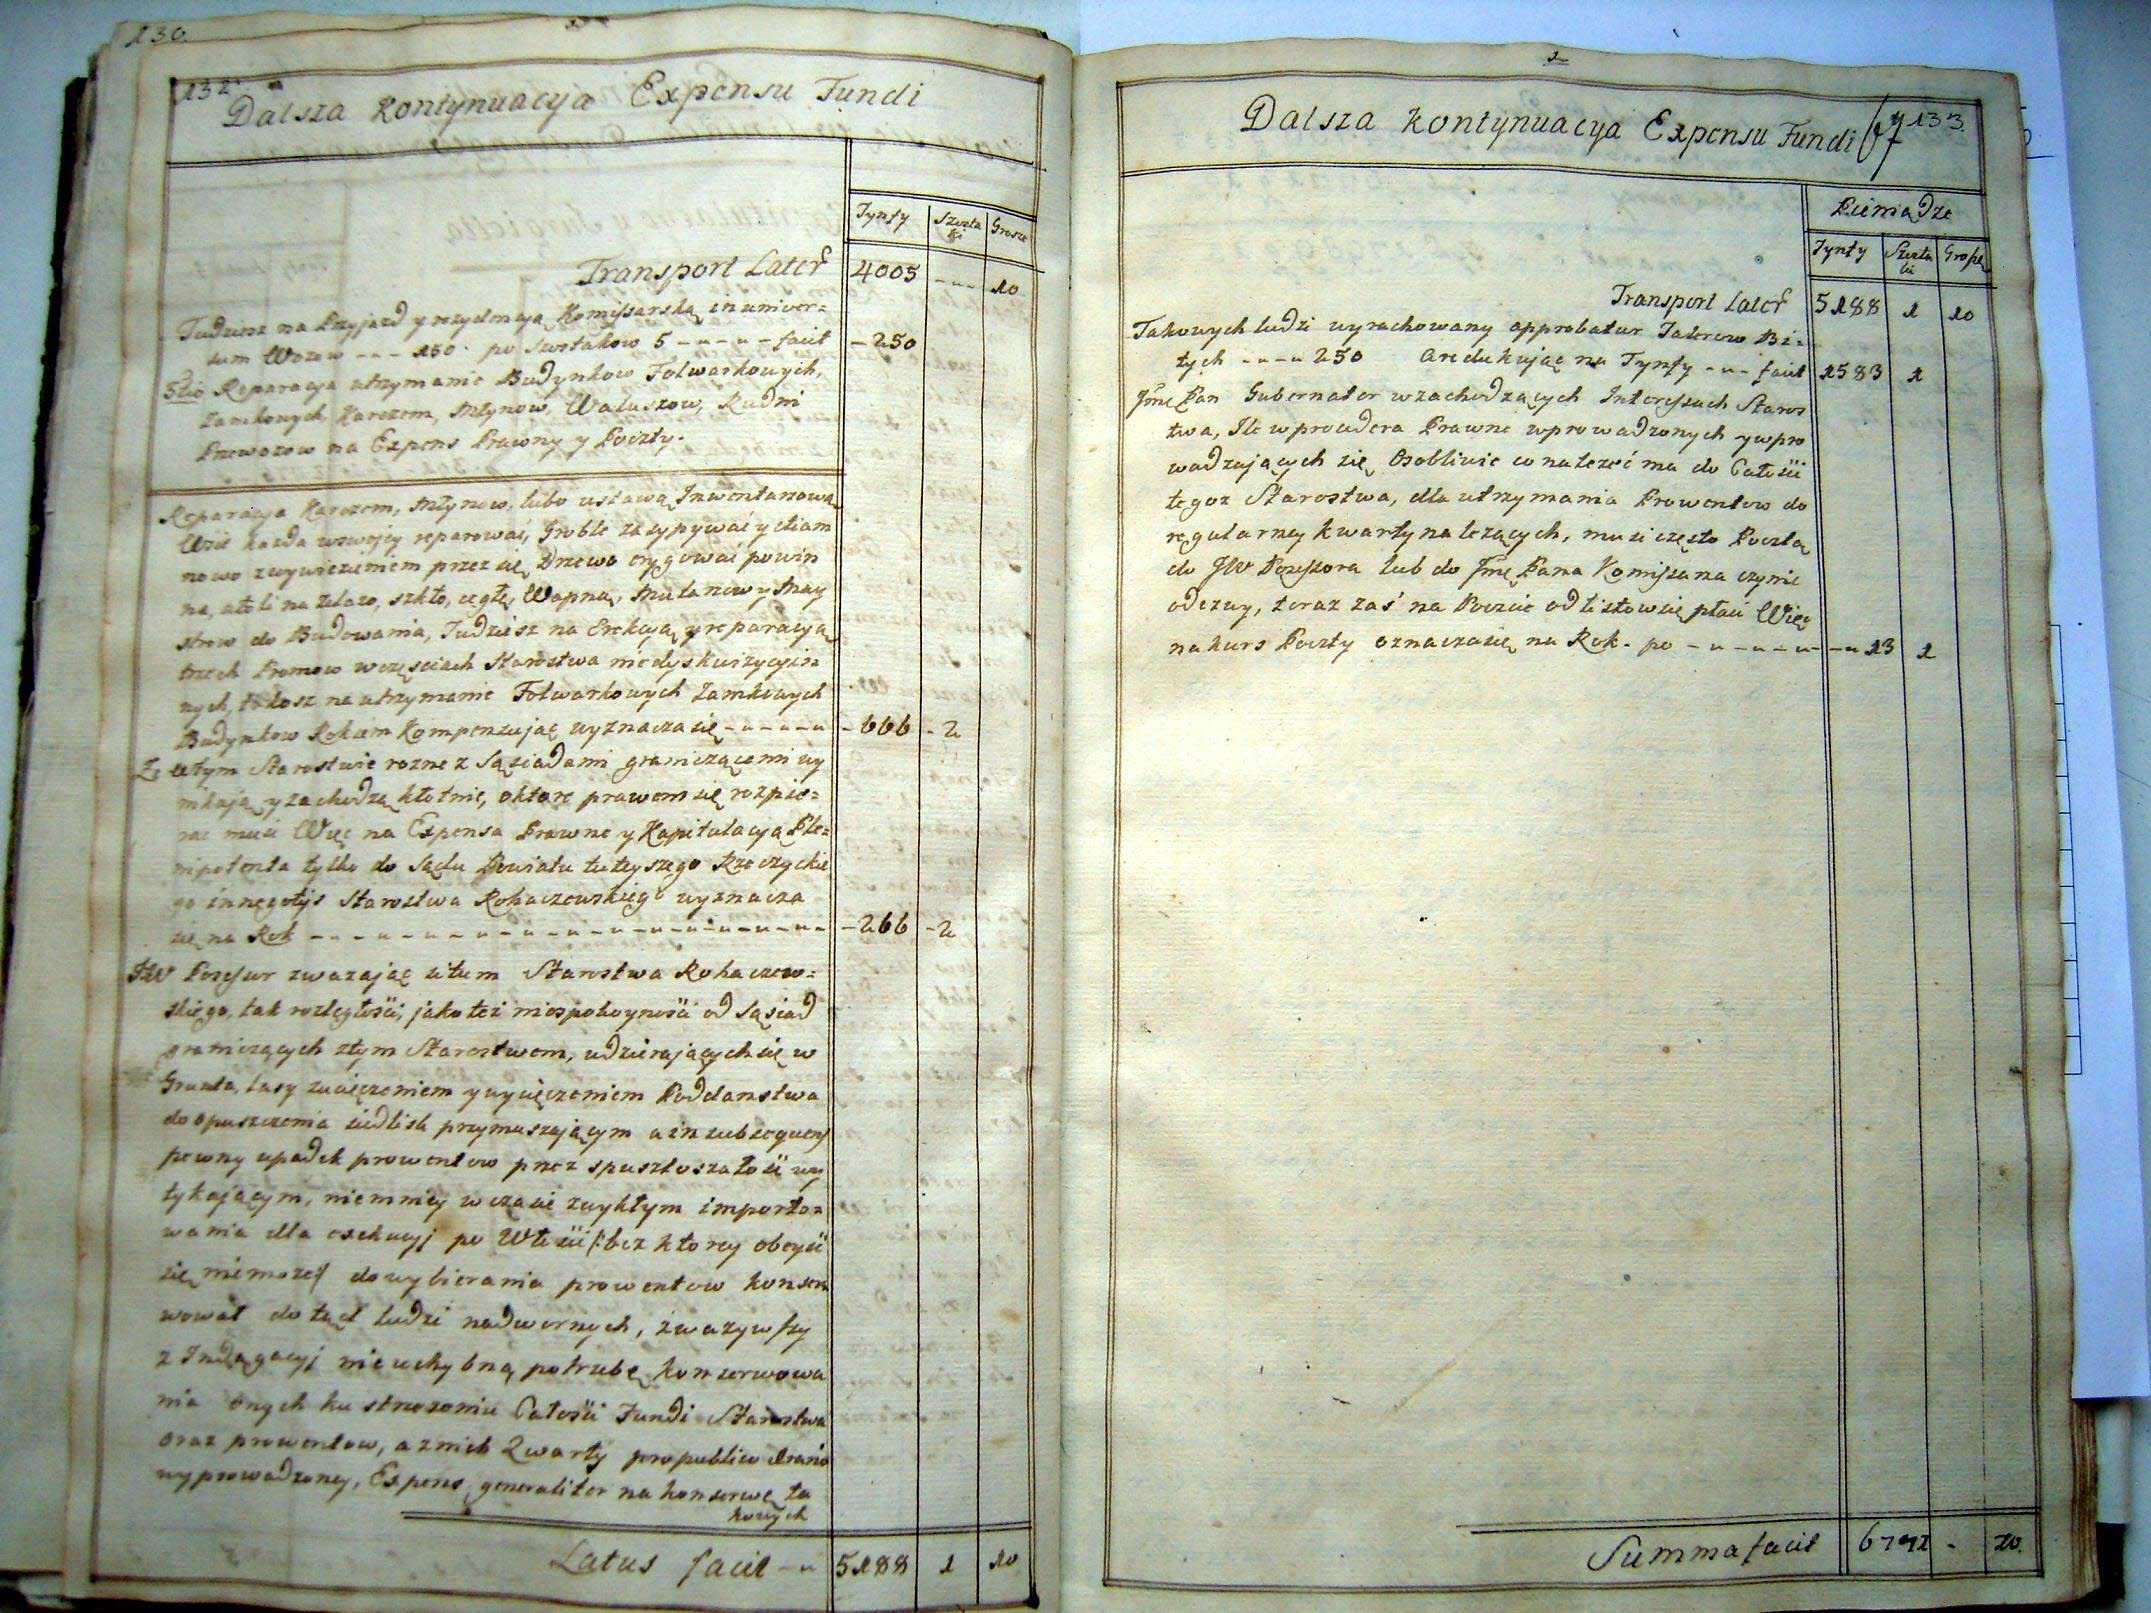 130.
132.
Dalsza Kontynuacya Expensu Fundi
Tynfy Szosta ki Grosze
Transport Later 4005 - - - 10
Tudziesz na Przyjazd y rezydencyą Komissarską in univer=
sum Wozow - - - 150 po szostakow 5 - facit - 250
5tio Reparacya utrzymanie Budynkow Folwarkowych,
Zamkowych, Karczem, Młynow, Waluszow, Rudni
Przewozow na Expens Prawny y Poczty.
Reparacya Karczem, Młynow, lubo ustawą Inwentarzową
Wsie każda w swojey reparować, Groble zasypywać y etiam
nowo z wywiezieniem przez się Drzewa erygować powin
na, atoli na żelazo, szkło, cegłę, Wapno, Mularzow y May
strow do Budowania, Tudziesz na Erekcyą y reparacyą
trzech Promow w częściach Starostwa niedyskwizycyin
nych, tokosz na utrzymanie Folwarkowych Zamkowych
Budynkow Rokiem Kompensując wyznacza się - 666 - 2
Ze w tym Starostwie rozne z Sąsiadami graniczącemi wy
nikają y zachodzą kłotnie, o ktore prawem się rozpie=
rac musi Więc na Expensa Prawne y Kapitulacyą Ple=
nipotenta tylko do Sądu Powiatu tuteyszego Rzeczyckie
go in negotijs Starostwa Rohaczewskiego wyznacza
się na Rok - 266 - 2
JW Posessor zwazając situm Starostwa Rohaczew=
skiego, tak rozległości, jako też niespokoyności od Sąsiad
graniczących z tym Starostwem, udzierających się w
Grunta, lasy zwięczeniem y wycięczeniem Poddaństwa
do opuszczenia siedlisk przymuszającym a in subsequens
pewny upadek prowentow przez spustoszałości wy
tykającym, niemniey w czasie zwykłym importo=
wania dla exekucyj po Włości /:bez ktorey obeyść
się niemoże/ do wybierania prowentow konser
wował dotąd ludzi nadwornych, zwazywszy
z Indagacyj nieuchybną potrzebę konserwowa
nia onych ku strzezeniu Całości Fundi Starostwa
oraz prowentow, a z nich Kwarty pro publico aerario
wyprowadzoney, Expens generaliter na konserwę ta
kowych
Latus facit - 5188 1 10
133.
Dalsza Kontynuacya Expensu Fundi
Pieniądze
Tynfy Szosta ki Grosze
Transport Later 5188 1 10
Takowych ludzi wyrachowany approbatur Talerow Bi=
tych - - - 250 a redukując na Tynfy - facit 1583 1
Jmć Pan Gubernator w zachodzących Interessach Staros
twa, Ile w procedera Prawne wprowadzonych y wpro
wadzających się Osobliwie co należeć ma do Całości
tegoz Starostwa, dla utrzymania Prowentow do
regularney kwarty nalezących, musi często Pocztą
do JW Possessora lub do Jmć Pana Komissarza czynic
odezwy, teraz zaś na Poczcie od listow się płaci Więc
na kurs Poczty oznacza się na Rok. po - 13 1
Summa facit - 10.